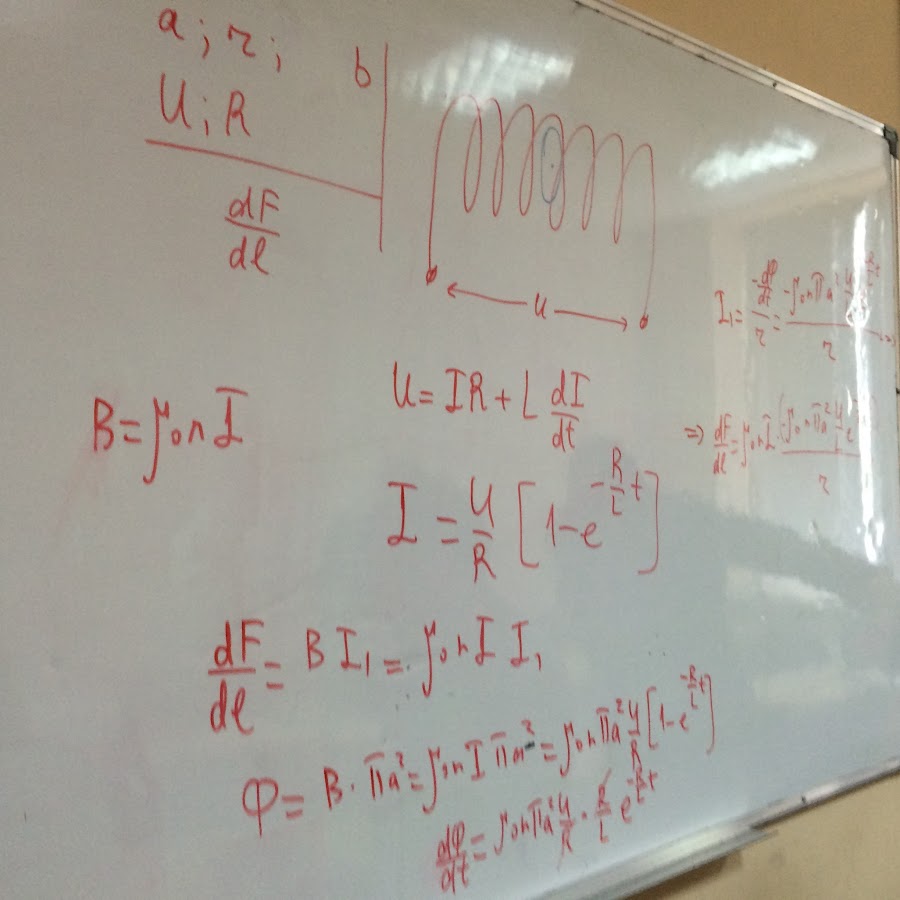 a; r;
b
U; R
dF/dl
U
B = μ₀nI
U = IR + L dI/dt
I = U/R [1 - e^(-R/L t)]
dF/dl = B I₁ = μ₀nI I₁
Φ = B · πa² = μ₀nI πa² = μ₀nπa² U/R [1 - e^(-R/L t)]
dφ/dt = μ₀nπa² U/R · R/L e^(-R/L t)
I₁ = (-dφ/dt)/r = (-μ₀nπa² U/L e^(-R/L t))/r
=> dF/dl = μ₀nI (-μ₀nπa² U/L e)/r